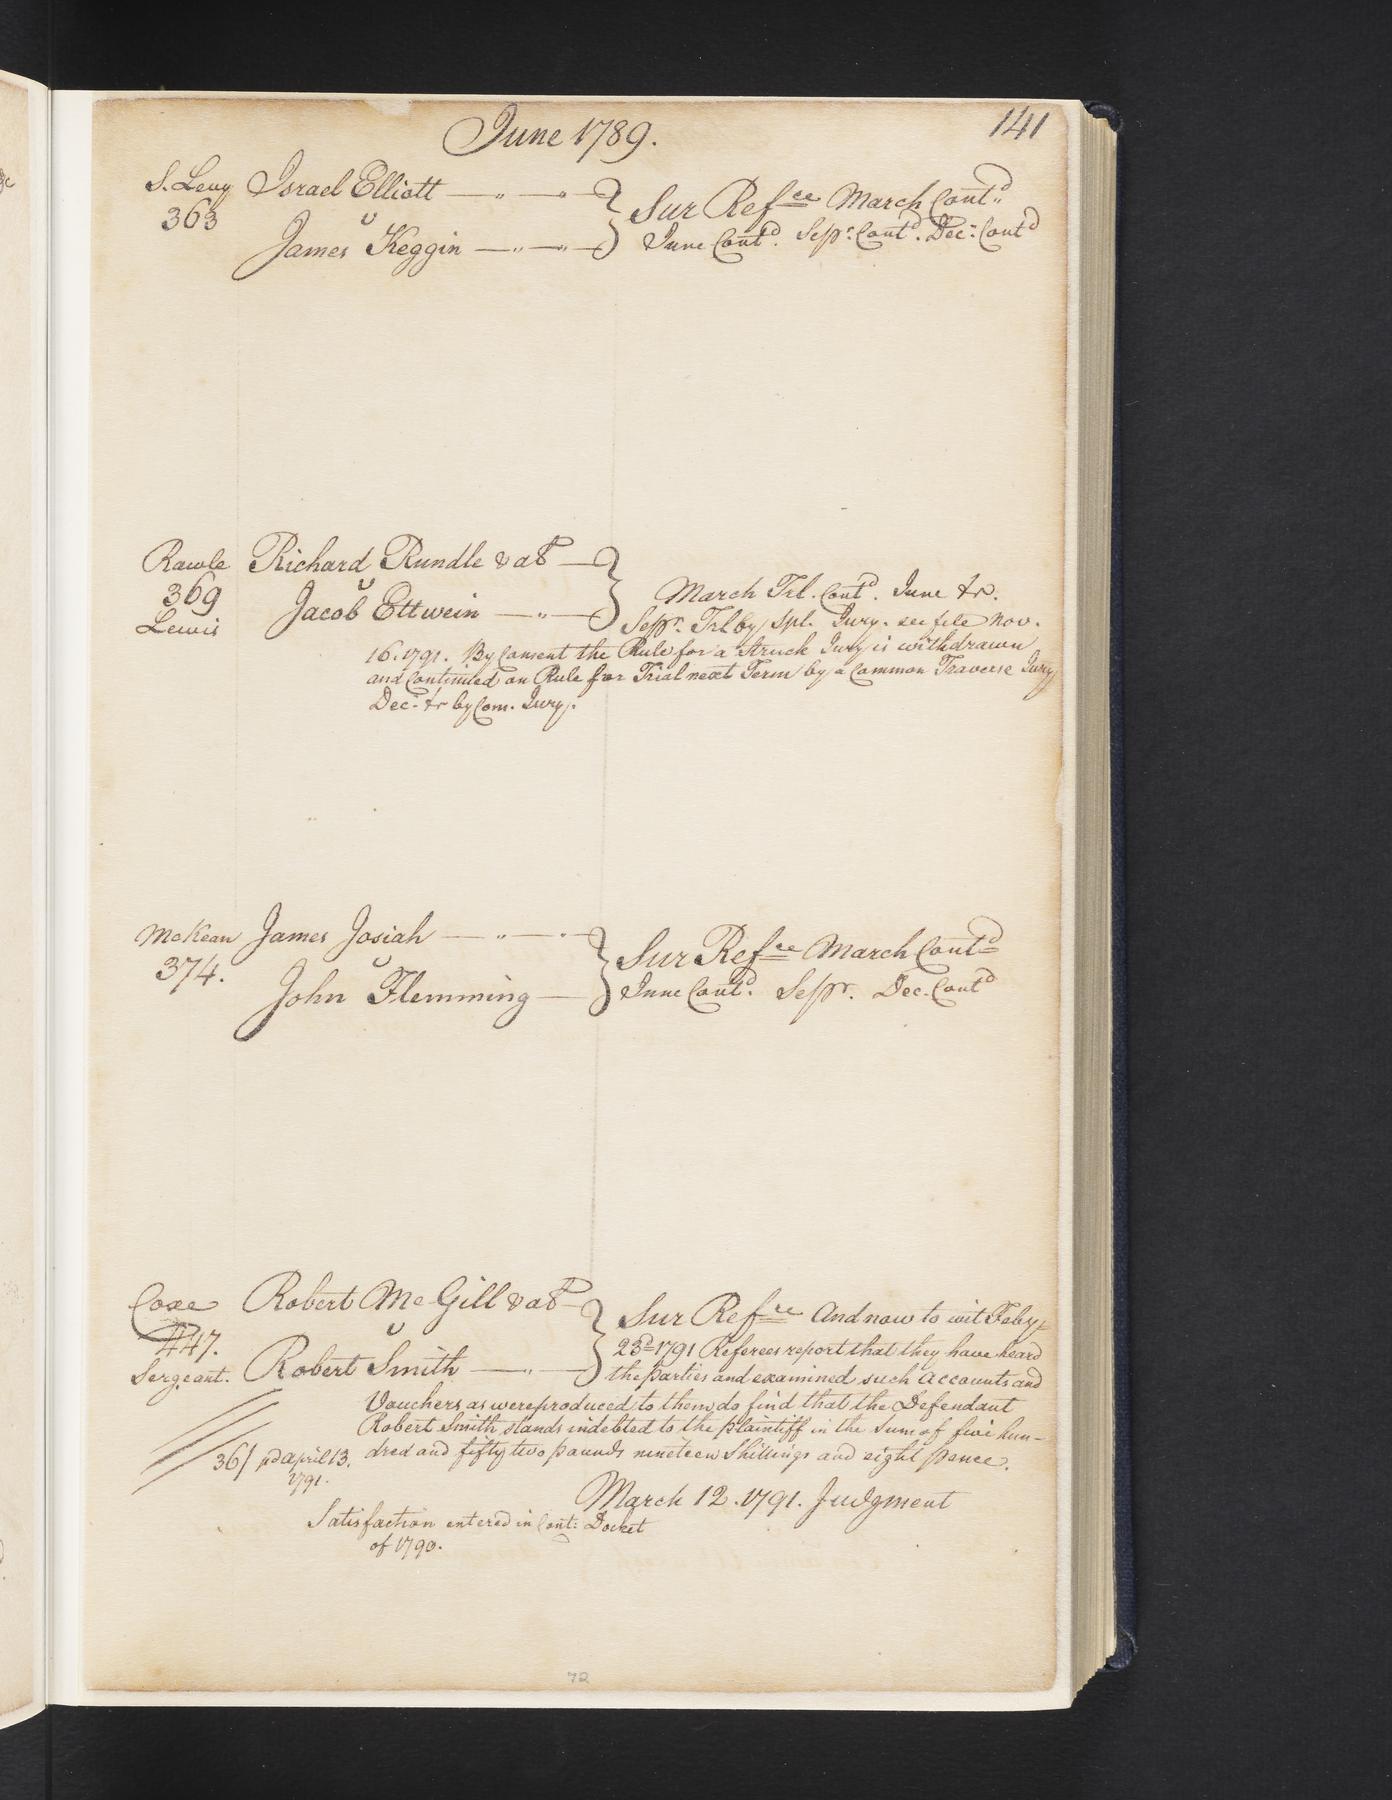 June 1789.
141
S. Levy Israel Elliott
363 v
James Keggin
Sur Refce March Contd
June Contd. Sepr. Contd. Dec. Contd
Rawle Richard Rundle & al
369 v
Jacob Ettwein
Lewis
March Trl. Contd. June &c.
Sepr. Trl by Spl. Jury. see file Nov.
16. 1791. By Consent the Rule for a Struck Jury is withdrawn
and Continued on Rule for Trial next Term by a Common Traverse Jury
Dec. &c by Com. Jury.
McKean James Josiah
374. v
John Flemming
Sur Refce March Contd
June Contd. Sepr. Dec. Contd
Coxe Robert McGill & al
447. v
Sergeant. Robert Smith
Sur Refce And now to wit Feby
23d 1791 Referees report that they have heard
the parties and examined such Accounts and
Vouchers as were produced to them, do find that the Defendant
Robert Smith stands indebted to the plaintiff in the Sum of five hun-
dred and fifty two pounds nineteen Shillings and eight pence.
36/ pd April 13.
1791.
March 12. 1791. Judgment
Satisfaction entered in Cont: Docket
of 1790.
72